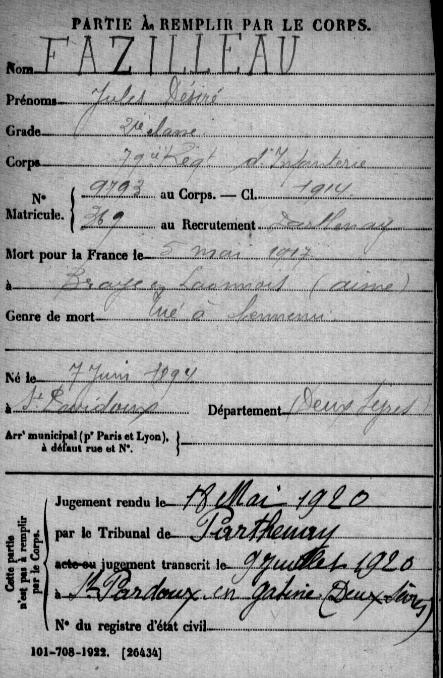 PARTIE À REMPLIR PAR LE CORPS.
Nom FAZILLEAU
Prénoms Jules Désiré
Grade 2e classe
Corps 79e Régt d'Infanterie
No Matricule. { 9793 au Corps. — Cl. 1914
369 au Recrutement Parthenay
Mort pour la France le 5 mai 1917
à Braye en Laonnois (aisne)
Genre de mort tué à l'ennemi
Né le 7 Juin 1894
à St Pardoux Département (Deux Sèvres)
Arrt municipal (pr Paris et Lyon), à défaut rue et No. }
Cette partie n'est pas à remplir par le Corps.
Jugement rendu le 18 Mai 1920
par le Tribunal de Parthenay
acte ou jugement transcrit le 9 juillet 1920
à St Pardoux en gatine (Deux-Sèvres)
No du registre d'état civil
101-708-1922. [26434]